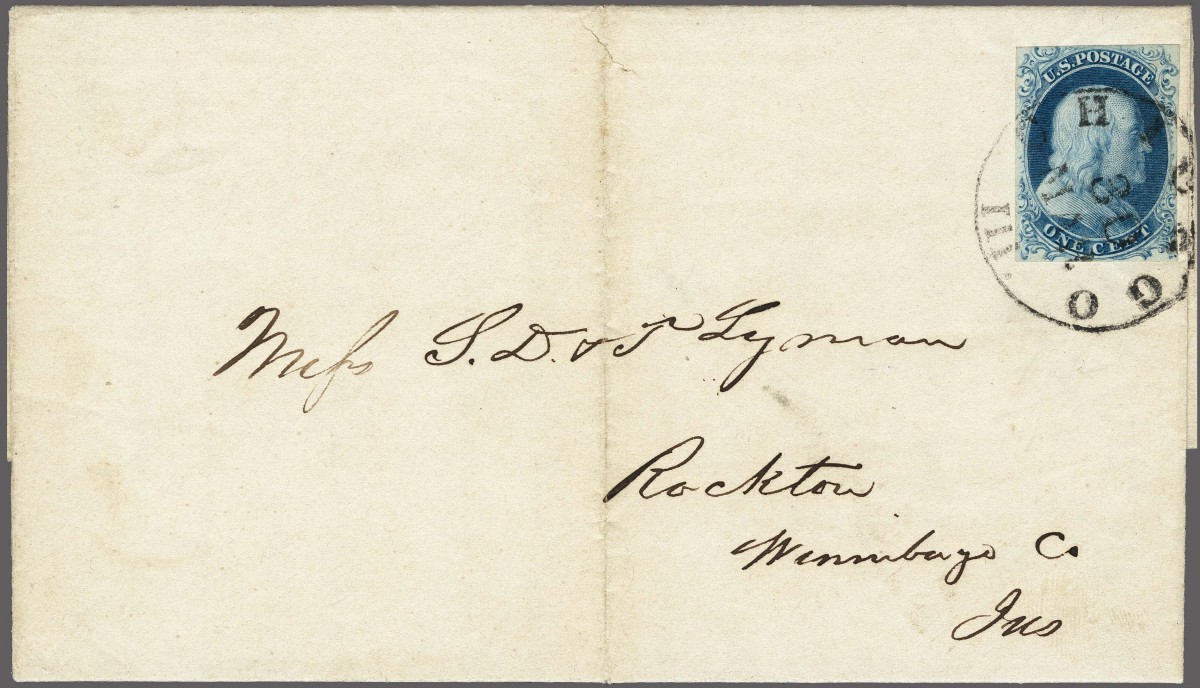 U.S. POSTAGE
ONE CENT
CHICAGO Ill
Mess S. D. & T Lyman
Rockton
Winnebago Co
Ills